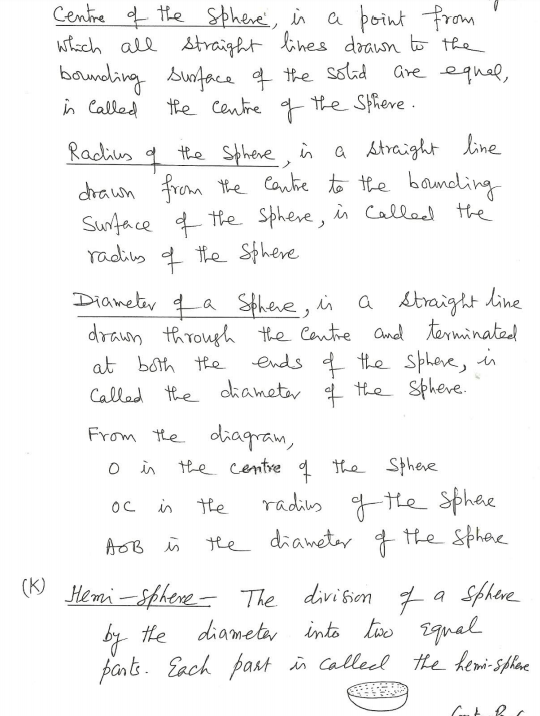 Centre of the sphere, is a point from
which all straight lines drawn to the
bounding surface of the solid are equal,
is called the centre of the sphere.
Radius of the sphere, is a straight line
drawn from the centre to the bounding
surface of the sphere, is called the
radius of the sphere
Diameter of a sphere, is a straight line
drawn through the centre and terminated
at both the ends of the sphere, is
called the diameter of the sphere.
From the diagram,
O is the centre of the sphere
OC is the radius of the sphere
AOB is the diameter of the sphere
(K) Hemi-sphere - The division of a sphere
by the diameter into two equal
parts. Each part is called the hemi-sphere